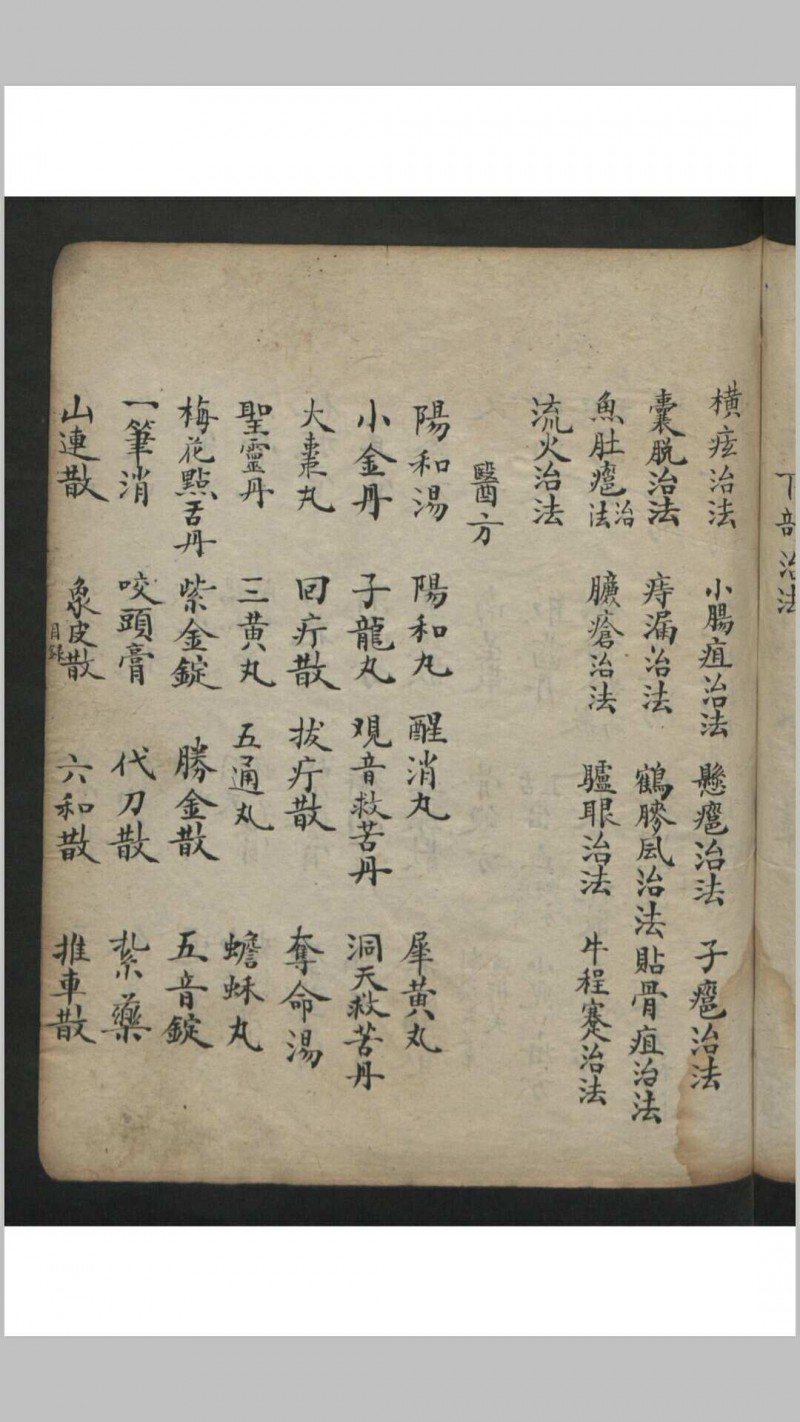 下部治法
橫痃治法 小腸疽治法 懸癰治法 子癰治法
囊脫治法 痔漏治法 鶴膝風治法 貼骨疽治法
魚肚癰治法 臁瘡治法 驢眼治法 牛程蹇治法
流火治法
醫方
陽和湯 陽和丸 醒消丸 犀黃丸
小金丹 子龍丸 观音救苦丹 洞天救苦丹
大棗丸 回疔散 拔疔散 奪命湯
聖靈丹 三黃丸 五通丸 蟾酥丸
梅花點舌丹 紫金錠 勝金散 五音錠
一筆消 咬頭膏 代刀散 紮藥
山連散 象皮散 六和散 推車散
目錄